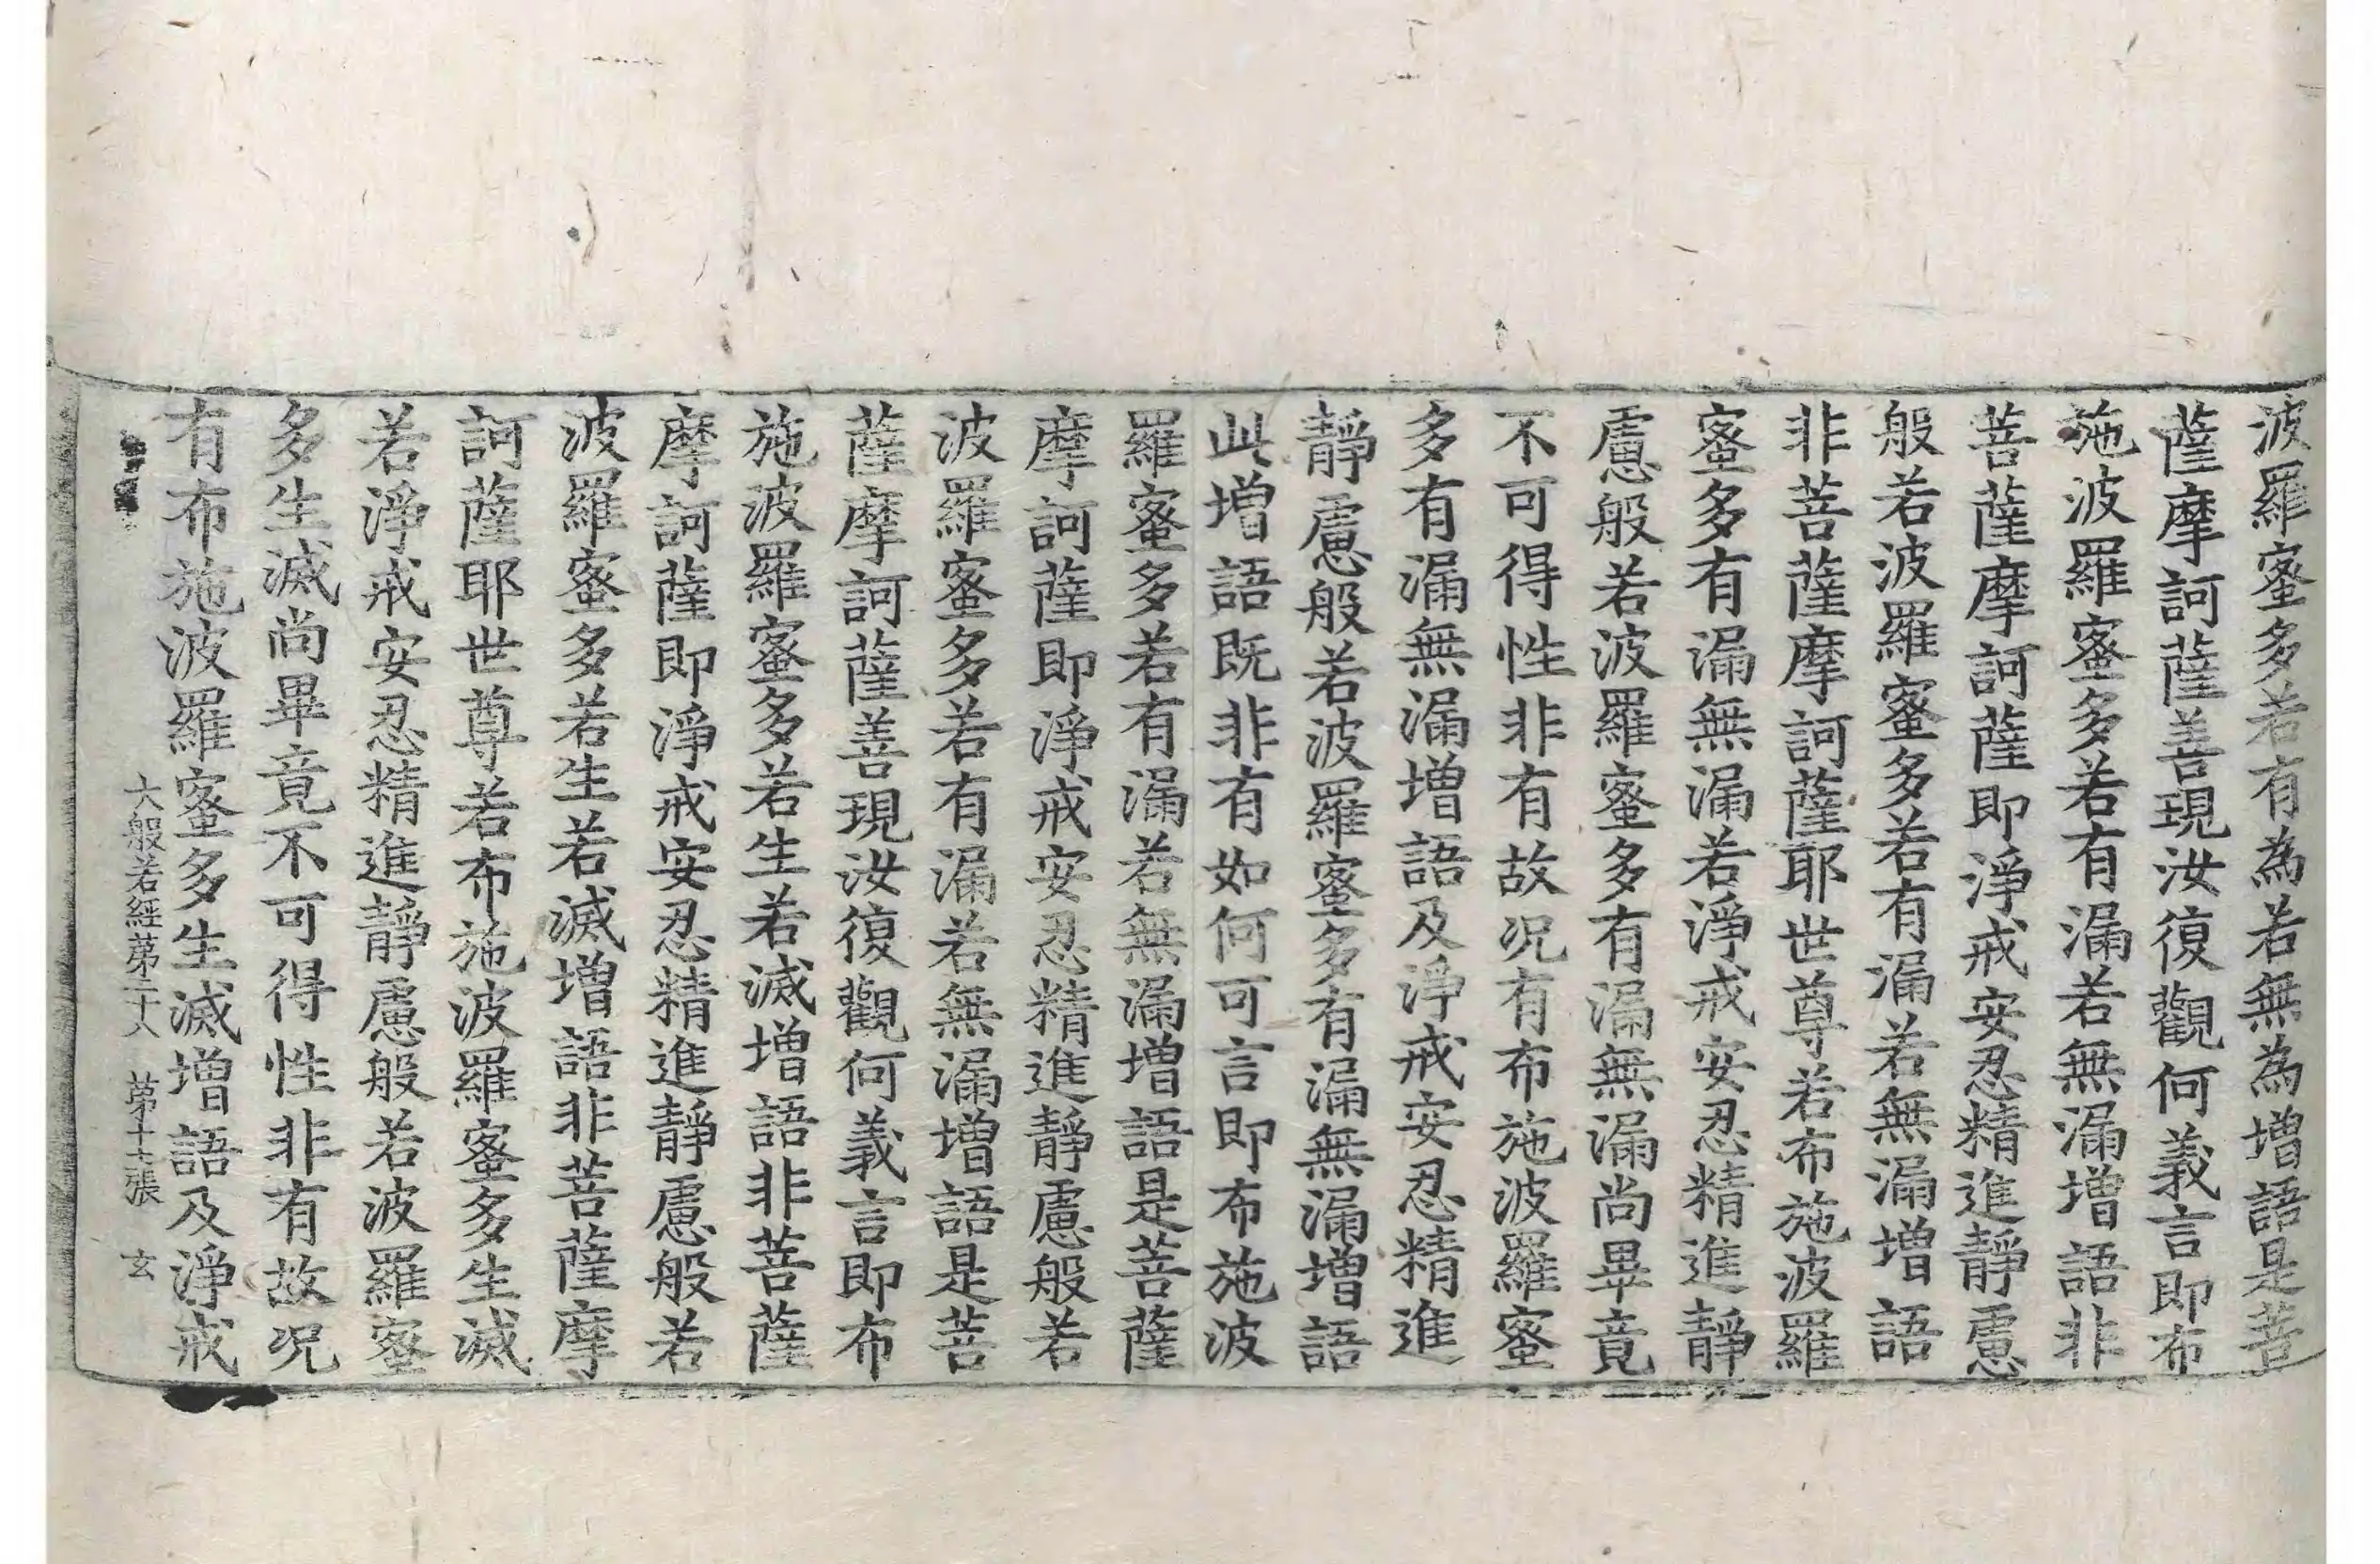 波羅蜜多若有為若無為增語是菩
薩摩訶薩善現汝復觀何義言即布
施波羅蜜多若有漏若無漏增語非
菩薩摩訶薩即淨戒安忍精進靜慮
般若波羅蜜多若有漏若無漏增語
非菩薩摩訶薩耶世尊若布施波羅
蜜多有漏無漏若淨戒安忍精進靜
慮般若波羅蜜多有漏無漏尚畢竟
不可得性非有故况有布施波羅蜜
多有漏無漏增語及淨戒安忍精進
靜慮般若波羅蜜多有漏無漏增語
此增語既非有如何可言即布施波
羅蜜多若有漏若無漏增語是菩薩
摩訶薩即淨戒安忍精進靜慮般若
波羅蜜多若有漏若無漏增語是菩
薩摩訶薩善現汝復觀何義言即布
施波羅蜜多若生若滅增語非菩薩
摩訶薩即淨戒安忍精進靜慮般若
波羅蜜多若生若滅增語非菩薩摩
訶薩耶世尊若布施波羅蜜多生滅
若淨戒安忍精進靜慮般若波羅蜜
多生滅尚畢竟不可得性非有故况
有布施波羅蜜多生滅增語及淨戒
大般若經第二十八 第十七張 玄